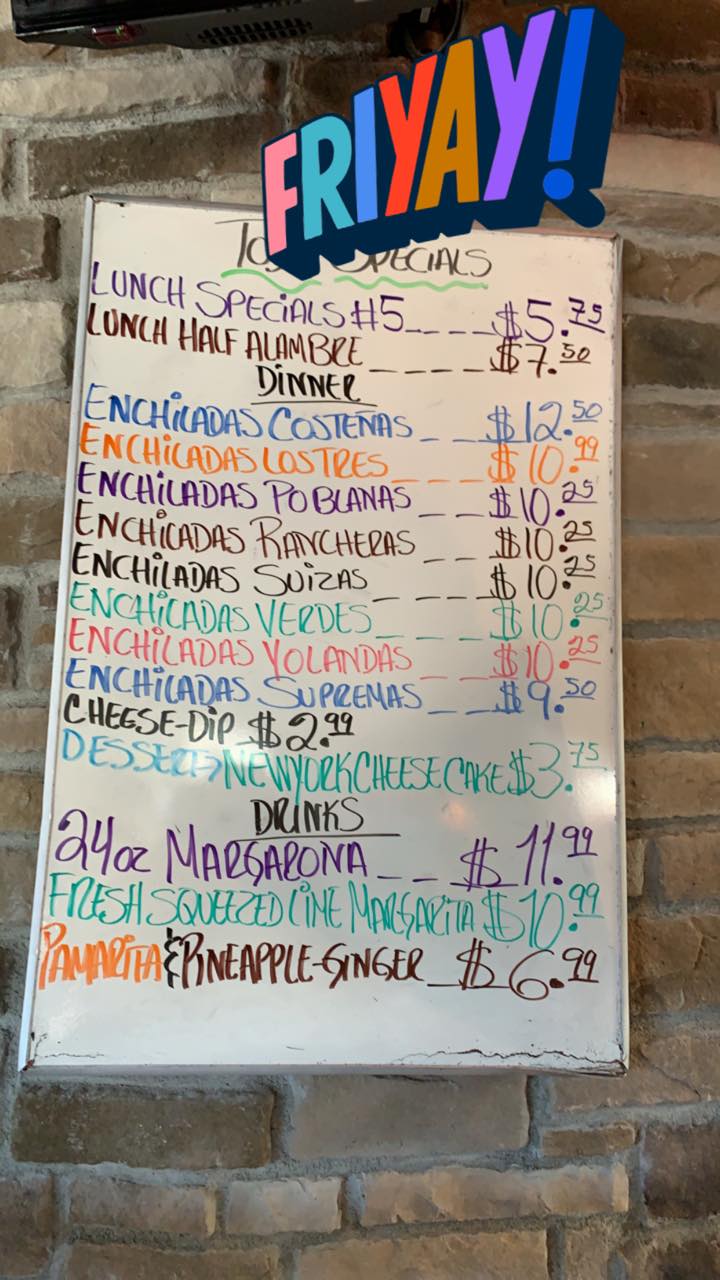 FRIYAY!
SPECIALS
LUNCH SPECIALS #5____$5.75
LUNCH HALF ALAMBRE____$7.50
DINNER
ENCHILADAS COSTEÑAS__$12.50
ENCHILADAS LOS TRES___$10.99
ENCHILADAS POBLANAS__$10.25
ENCHILADAS RANCHERAS__$10.25
ENCHILADAS SUIZAS___$10.25
ENCHILADAS VERDES___$10.25
ENCHILADAS YOLANDAS__$10.25
ENCHILADAS SUPREMAS__$9.50
CHEESE-DIP $2.99
DESSERTS NEW YORK CHEESE CAKE $3.75
DRINKS
24oz MARGARONA__$11.99
FRESH SQUEEZED LIME MARGARITA $10.99
PAMARITA & PINEAPPLE-GINGER_$6.99